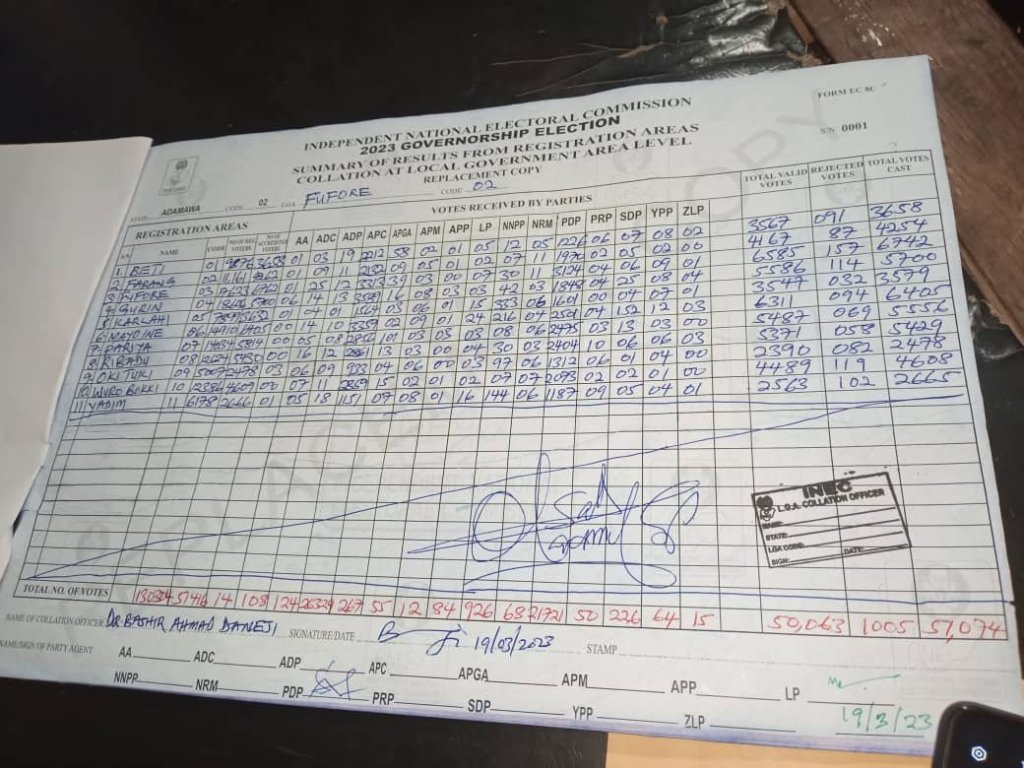 INDEPENDENT NATIONAL ELECTORAL COMMISSION
2023 GOVERNORSHIP ELECTION
SUMMARY OF RESULTS FROM REGISTRATION AREAS
COLLATION AT LOCAL GOVERNMENT AREA LEVEL
REPLACEMENT COPY
FORM EC 8C
S/N 0001
STATE ADAMAWA CODE 02 LGA FUFORE CODE 02
REGISTRATION AREAS VOTES RECEIVED BY PARTIES TOTAL VALID VOTES REJECTED VOTES TOTAL VOTES CAST
S/N NAME CODE NO OF REG. VOTERS NO OF ACCREDITED VOTERS AA ADC ADP APC APGA APM APP LP NNPP NRM PDP PRP SDP YPP ZLP
1. BETI 01 9876 3658 01 03 19 2212 58 02 01 05 12 05 1226 06 07 08 02 3567 091 3658
2 FARANG 02 11161 4262 01 09 11 2132 09 05 01 02 07 11 1970 02 05 02 00 4167 87 4254
3 FUFORE 03 6742 01 25 12 3313 39 03 00 07 30 11 3124 04 06 09 01 6585 157 6742
4 GURIN 04 5700 06 14 13 3589 16 08 03 03 42 03 1848 04 25 08 04 5586 114 5700
5 KARLAHI 05 7849 3632 01 04 01 1564 03 06 01 15 333 06 1601 00 04 07 01 3547 032 3579
6 MAYOINE 06 14910 6405 00 14 10 3359 02 09 01 24 216 04 2501 04 152 12 03 6311 094 6405
7 PARIYA 07 5814 00 05 08 2856 101 03 03 03 08 06 2475 03 13 03 00 5487 069 5556
8 RIBADU 08 12624 5430 00 16 12 2861 13 03 00 04 30 03 2404 10 06 06 03 5371 058 5429
9 OKI TURI 09 5007 2478 03 06 09 933 04 06 00 03 97 06 1312 06 01 04 00 2390 082 2478
10 WURO BOKKI 10 12386 4609 00 07 11 2359 15 02 01 02 07 07 2073 02 02 01 00 4489 119 4608
11 YADIM 11 6178 2666 01 05 18 1151 07 08 01 16 144 06 1187 09 05 04 01 2563 102 2665
INEC
L.G.A. COLLATION OFFICER
NAME:
STATE:
LGA CODE:
SIGN: DATE:
TOTAL NO. OF VOTES 51416 14 108 124 26329 267 55 12 84 926 68 21721 50 226 64 15 50,063 1005 51,074
NAME OF COLLATION OFFICER DR. BASHIR AHMAD DANEJI SIGNATURE/DATE 19/03/2023 STAMP
NAME/SIGN OF PARTY AGENT
AA ADC ADP APC APGA APM APP LP
NNPP NRM PDP PRP SDP YPP ZLP 19/3/23